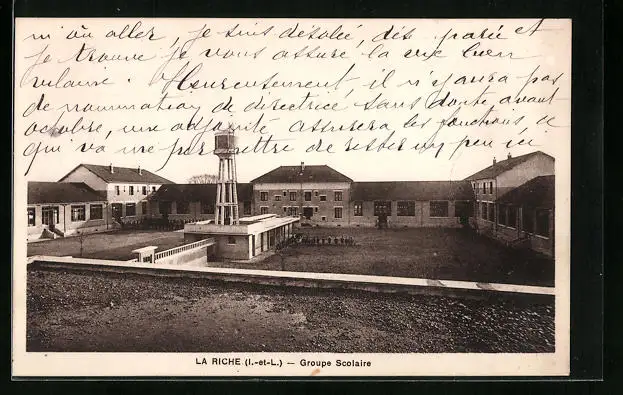 m'où aller, je suis désolée, désemparée et
je trouve je vous assure la vie bien
vilaine. Heureusement, il n'y aura pas
de nomination de directrice sans doute avant
octobre, une adjointe assurera les fonctions, ce
qui va me permettre de rester un peu ici
LA RICHE (I.-et-L.) — Groupe Scolaire